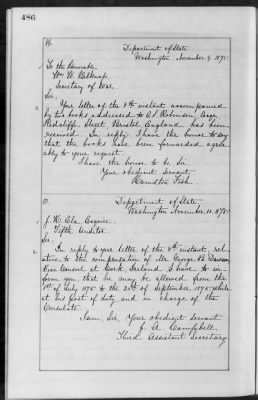 486
Department of State
Washington November 9 1875
To the Honorable
Wm W. Belknap
Secretary of War
Sir
Your letter of the 8th instant accompanied
by two books addressed to Ed Robinson, Esqr
Redcliffe Street, Bristol, England has been
received. In reply I have the honor to say
that the books have been forwarded agree
ably to your request
I have the honor to be Sir
Your obedient servant
Hamilton Fish
Department of State
Washington November 10. 1875
Esquire
Fifth Auditor
Sir.
In reply to your letter of the 9th instant, rel-
ative to the compensation of Mr George B. Dawson
Vice Consul at Cork, Ireland I have to in-
form you, that he may be allowed from the
1st of July 1875 to the 20th of September 1875 while
at his Post of duty and in charge of the
Consulate
I am, Sir, Your obedient servant
J. A. Campbell
Third Assistant Secretary